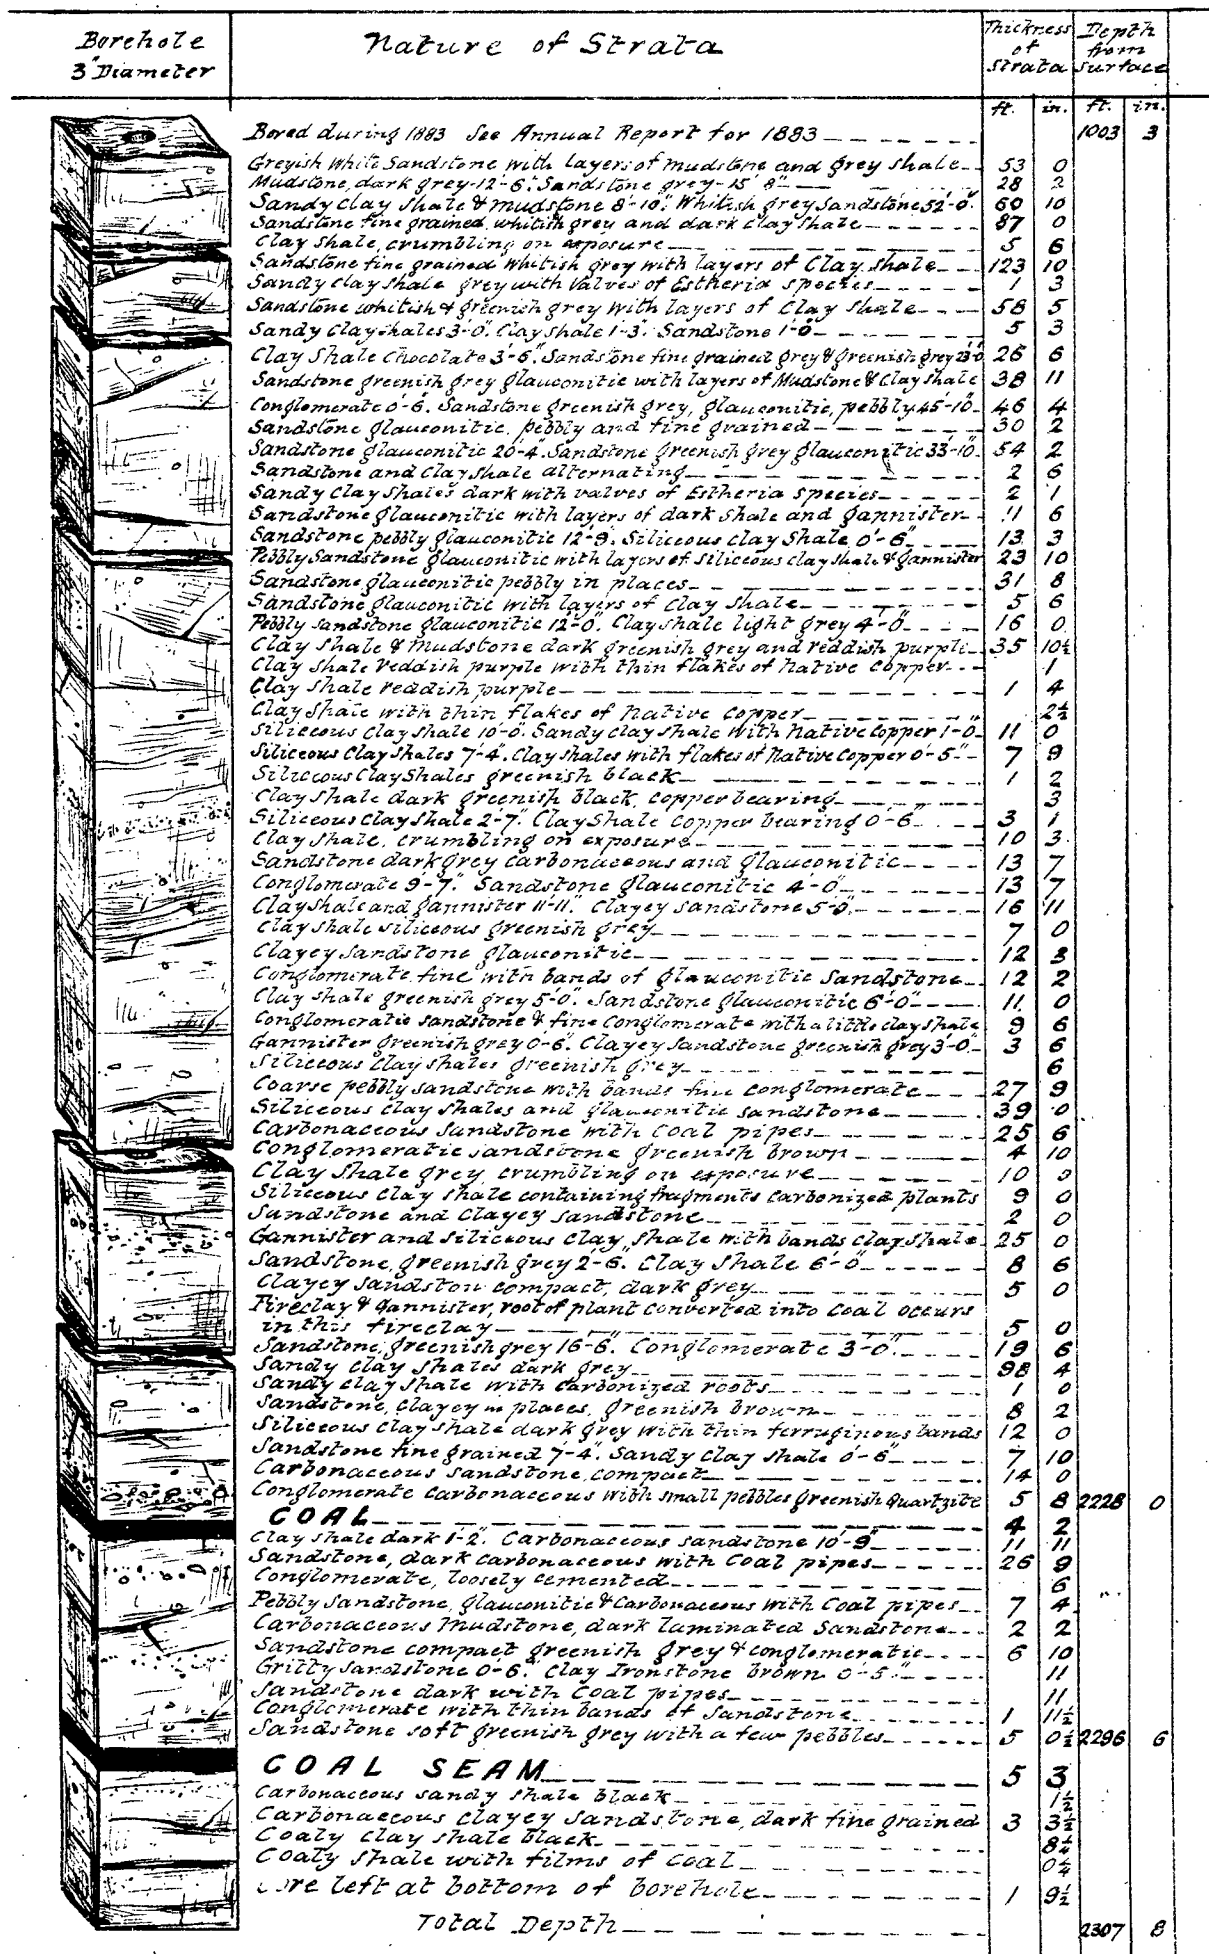 Borehole
3" Diameter
Nature of Strata
Thickness of Strata
Depth from Surface
ft. in. ft. in.
Bored during 1883 See Annual Report for 1883 1003 3
Greyish White Sandstone with layers of mudstone and grey shale 53 0
Mudstone, dark grey 12'-6". Sandstone grey 15'8" 28 2
Sandy Clay Shale & Mudstone 8'-10". Whitish grey Sandstone 52'-0" 60 10
Sandstone fine grained, whitish grey and dark Clay Shale 87 0
Clay Shale, crumbling on exposure 5 6
Sandstone fine grained Whitish grey with layers of Clay Shale 123 10
Sandy Clay Shale grey with Valves of Estheria species 1 3
Sandstone whitish & greenish grey with layers of Clay Shale 58 5
Sandy Clay shales 3'-0". Clay shale 1'-3". Sandstone 1'-0" 5 3
Clay Shale Chocolate 3'-6". Sandstone fine grained grey & greenish grey 23'-0" 26 6
Sandstone greenish grey glauconitic with layers of Mudstone & Clay shale 38 11
Conglomerate 0'-6". Sandstone greenish grey, glauconitic, pebbly 45'-10" 46 4
Sandstone glauconitic, pebbly and fine grained 30 2
Sandstone glauconitic 20'-4". Sandstone greenish grey glauconitic 33'-10" 54 2
Sandstone and Clay shale alternating 2 6
Sandy Clay Shales dark with valves of Estheria species 2 1
Sandstone glauconitic with layers of dark Shale and gannister 11 6
Sandstone pebbly glauconitic 12'-9". Siliceous Clay Shale 0'-6" 13 3
Pebbly Sandstone glauconitic with layers of siliceous clay shale & Gannister 23 10
Sandstone glauconitic pebbly in places 31 8
Sandstone glauconitic with layers of Clay Shale 5 6
Pebbly sandstone glauconitic 12'-0". Clay shale light grey 4'-0" 16 0
Clay Shale & Mudstone dark greenish grey and reddish purple 35 10½
Clay Shale reddish purple with thin flakes of Native Copper 1
Clay Shale reddish purple 1 4
Clay Shale with thin flakes of Native Copper 2½
Siliceous Clay shale 10'-0". Sandy clay shale with Native Copper 1'-0" 11 0
Siliceous Clay shales 7'-4". Clay shales with flakes of Native Copper 0'-5" 7 9
Siliceous Clay Shales greenish black 1 2
Clay Shale dark greenish black, copper bearing 3
Siliceous Clay shale 2'-7". Clay Shale copper bearing 0'-6" 3 1
Clay Shale, crumbling on exposure 10 3
Sandstone dark grey carbonaceous and glauconitic 13 7
Conglomerate 9'-7". Sandstone glauconitic 4'-0" 13 7
Clay shale and gannister 11'-11". Clayey sandstone 5'-0" 16 11
Clay shale siliceous greenish grey 7 0
Clayey sandstone glauconitic 12 3
Conglomerate fine with bands of glauconitic Sandstone 12 2
Clay shale greenish grey 5'-0". Sandstone glauconitic 6'-0" 11 0
Conglomeratic sandstone & fine Conglomerate with a little clay shale 9 6
Gannister greenish grey 0'-6". Clayey sandstone greenish grey 3'-0" 3 6
Siliceous clay shales greenish grey 6
Coarse pebbly sandstone with bands fine conglomerate 27 9
Siliceous Clay shales and glauconitic sandstone 39 0
Carbonaceous sandstone with coal pipes 25 6
Conglomeratic sandstone greenish brown 4 10
Clay Shale grey, crumbling on exposure 10 0
Siliceous clay shale containing fragments carbonized plants 9 0
Sandstone and Clayey sandstone 2 0
Gannister and siliceous Clay shale with bands clay shale 25 0
Sandstone, greenish grey 2'-6". Clay Shale 6'-0" 8 6
Clayey sandston compact, dark grey 5 0
Fireclay & gannister, root of plant converted into coal occurs
in this fireclay 5 0
Sandstone, greenish grey 16'-6". Conglomerate 3'-0". 19 6
Sandy clay shales dark grey 98 4
Sandy clay shale with carbonized roots 1 0
Sandstone, clayey in places, greenish brown 8 2
Siliceous clay shale dark grey with thin ferruginous bands 12 0
Sandstone fine grained 7'-4". Sandy clay shale 0'-6" 7 10
Carbonaceous sandstone, compact 14 0
Conglomerate carbonaceous with small pebbles greenish quartzite 5 8 2228 0
COAL 4 2
Clay shale dark 1'-2". Carbonaceous sandstone 10'-9" 11 11
Sandstone, dark carbonaceous with coal pipes 26 9
Conglomerate, loosely cemented 6
Pebbly Sandstone, glauconitic & carbonaceous with coal pipes 7 4
Carbonaceous Mudstone, dark laminated Sandstone 2 2
Sandstone compact greenish grey & conglomeratic 6 10
Gritty sandstone 0'-6". Clay Ironstone brown 0'-5" 11
Sandstone dark with coal pipes 11
Conglomerate with thin bands of Sandstone 1 11½
Sandstone soft greenish grey with a few pebbles 5 0½ 2296 6
COAL SEAM 5 3
Carbonaceous sandy shale black 1½
Carbonaceous clayey sandstone, dark fine grained 3 3½
Coaly clay shale black 8¼
Coaly shale with films of coal 0¼
Core left at bottom of borehole 1 9½
Total Depth 2307 8